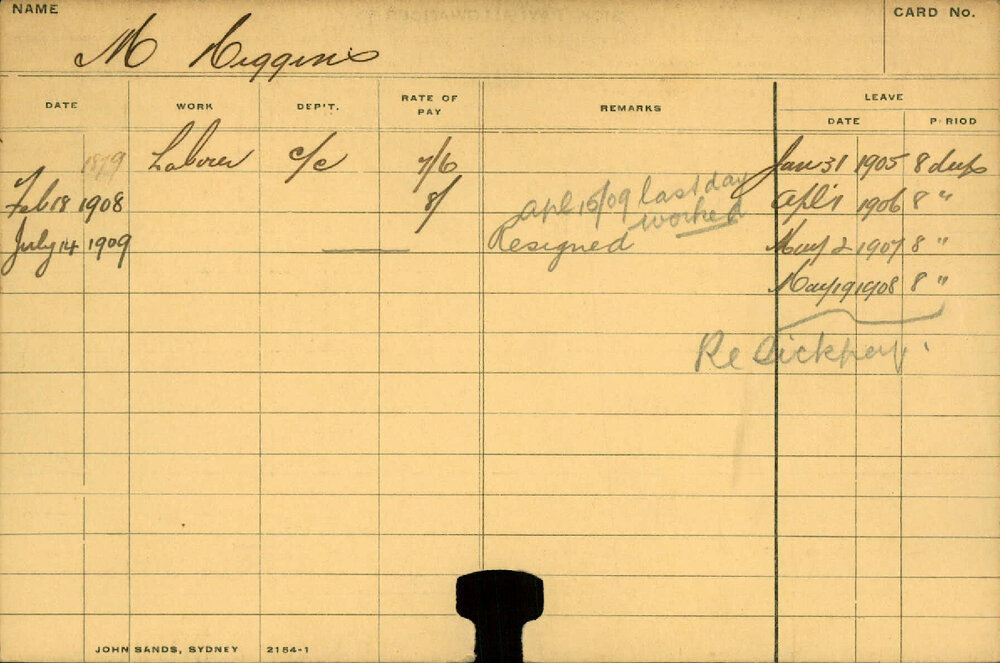 NAME
CARD No.
M Higgins
DATE WORK DEP'T. RATE OF PAY REMARKS LEAVE
DATE PERIOD
1879 Laborer c/c 7/6 Jan 31 1905 8 days
Feb 18 1908 8/ apl 15/09 last day worked Apl 1 1906 8 "
July 14 1909 Resigned May 2 1907 8 "
May 19 1908 8 "
Re Sickpay.
JOHN SANDS, SYDNEY 2154-1